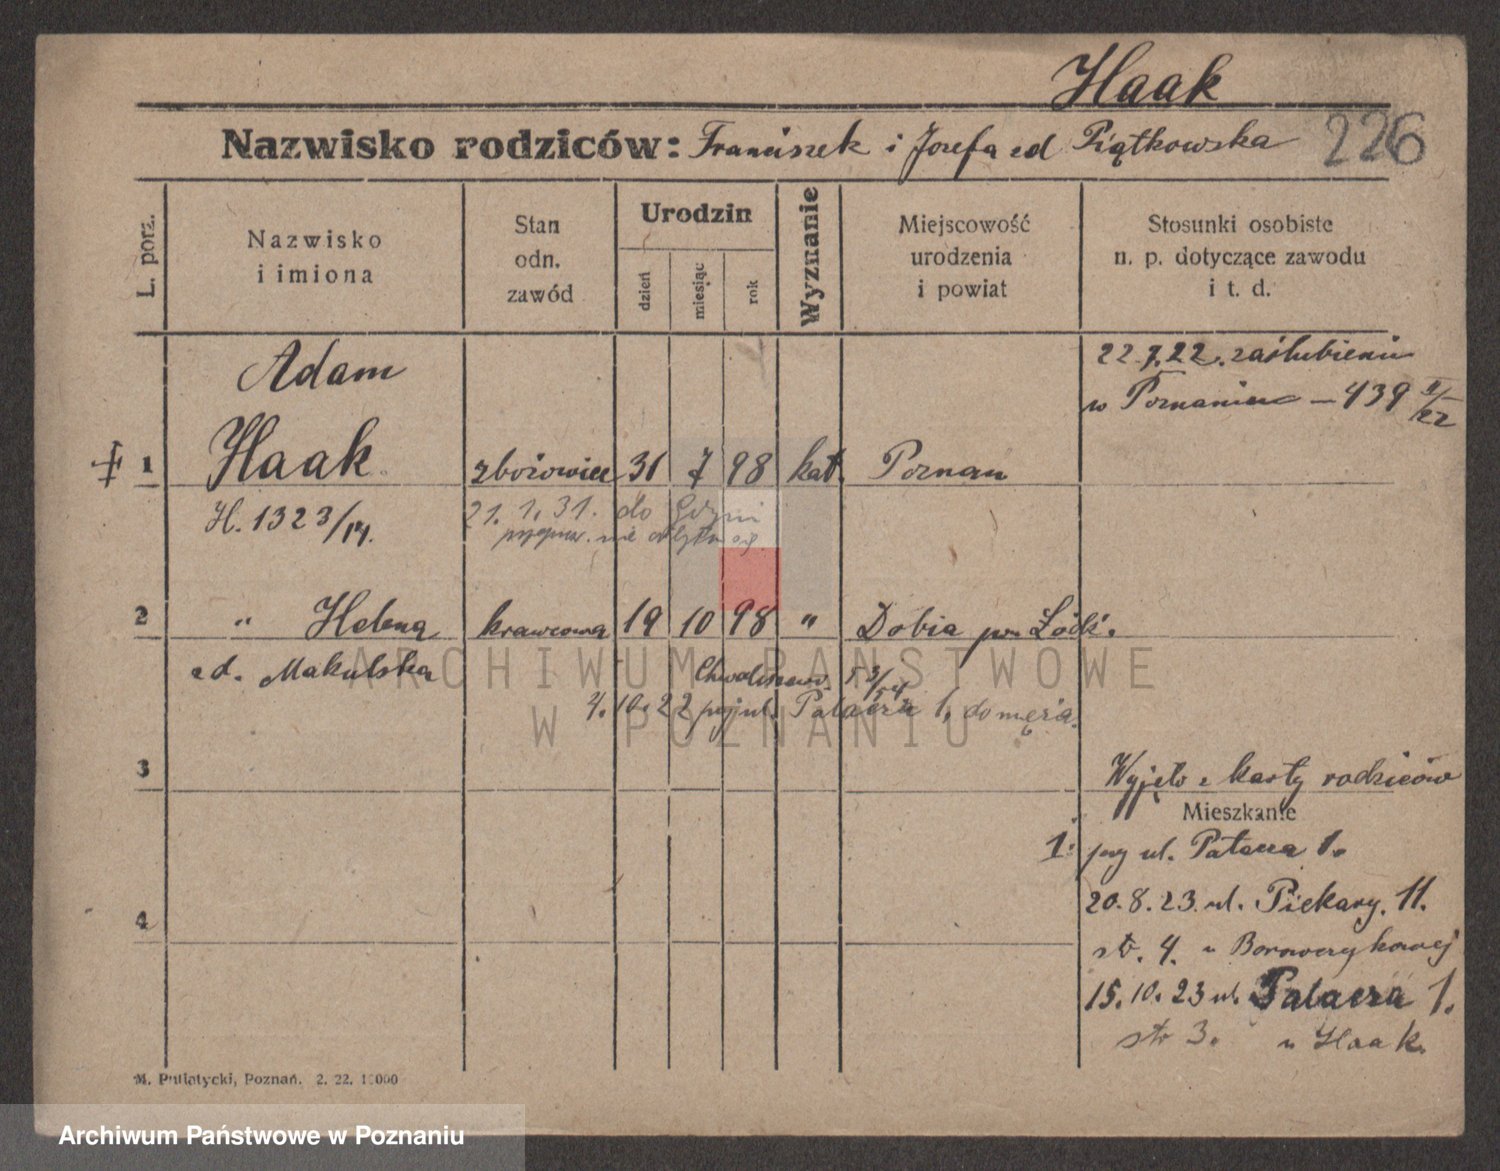 Haak
Nazwisko rodziców: Franciszek i Józefa zd Piątkowska 226
L. porz.
Nazwisko
i imiona
Stan
odn.
zawód
Urodzin
dzień
miesiąc
rok
Wyznanie
Miejscowość
urodzenia
i powiat
Stosunki osobiste
n. p. dotyczące zawodu
i t. d.
22.7.22. zaślubieni
w Poznaniu — 439 II/22
Adam
1 Haak zbożowiec 31 7 98 kat. Poznan
H. 1323/14.
21. 1. 31. do Gdyni
nie
2 " Helena krawcowa 19 10 98 " Dobia pow Łódź.
zd. Makulska
53/54
4. 10. 22 przy ul. Palacza 1, do męża.
3
Wyjęto z karty rodziców
Mieszkanie
1. przy ul. Palacza 1.
20. 8. 23. ul. Piekary. 11.
4
str. 4. u Borowczykowej
15. 10. 23 ul. Palacza 1.
str 3. u Haak.
M. Putiatycki, Poznań. 2. 22. 10000
ARCHIWUM PAŃSTWOWE
W POZNANIU
Archiwum Państwowe w Poznaniu